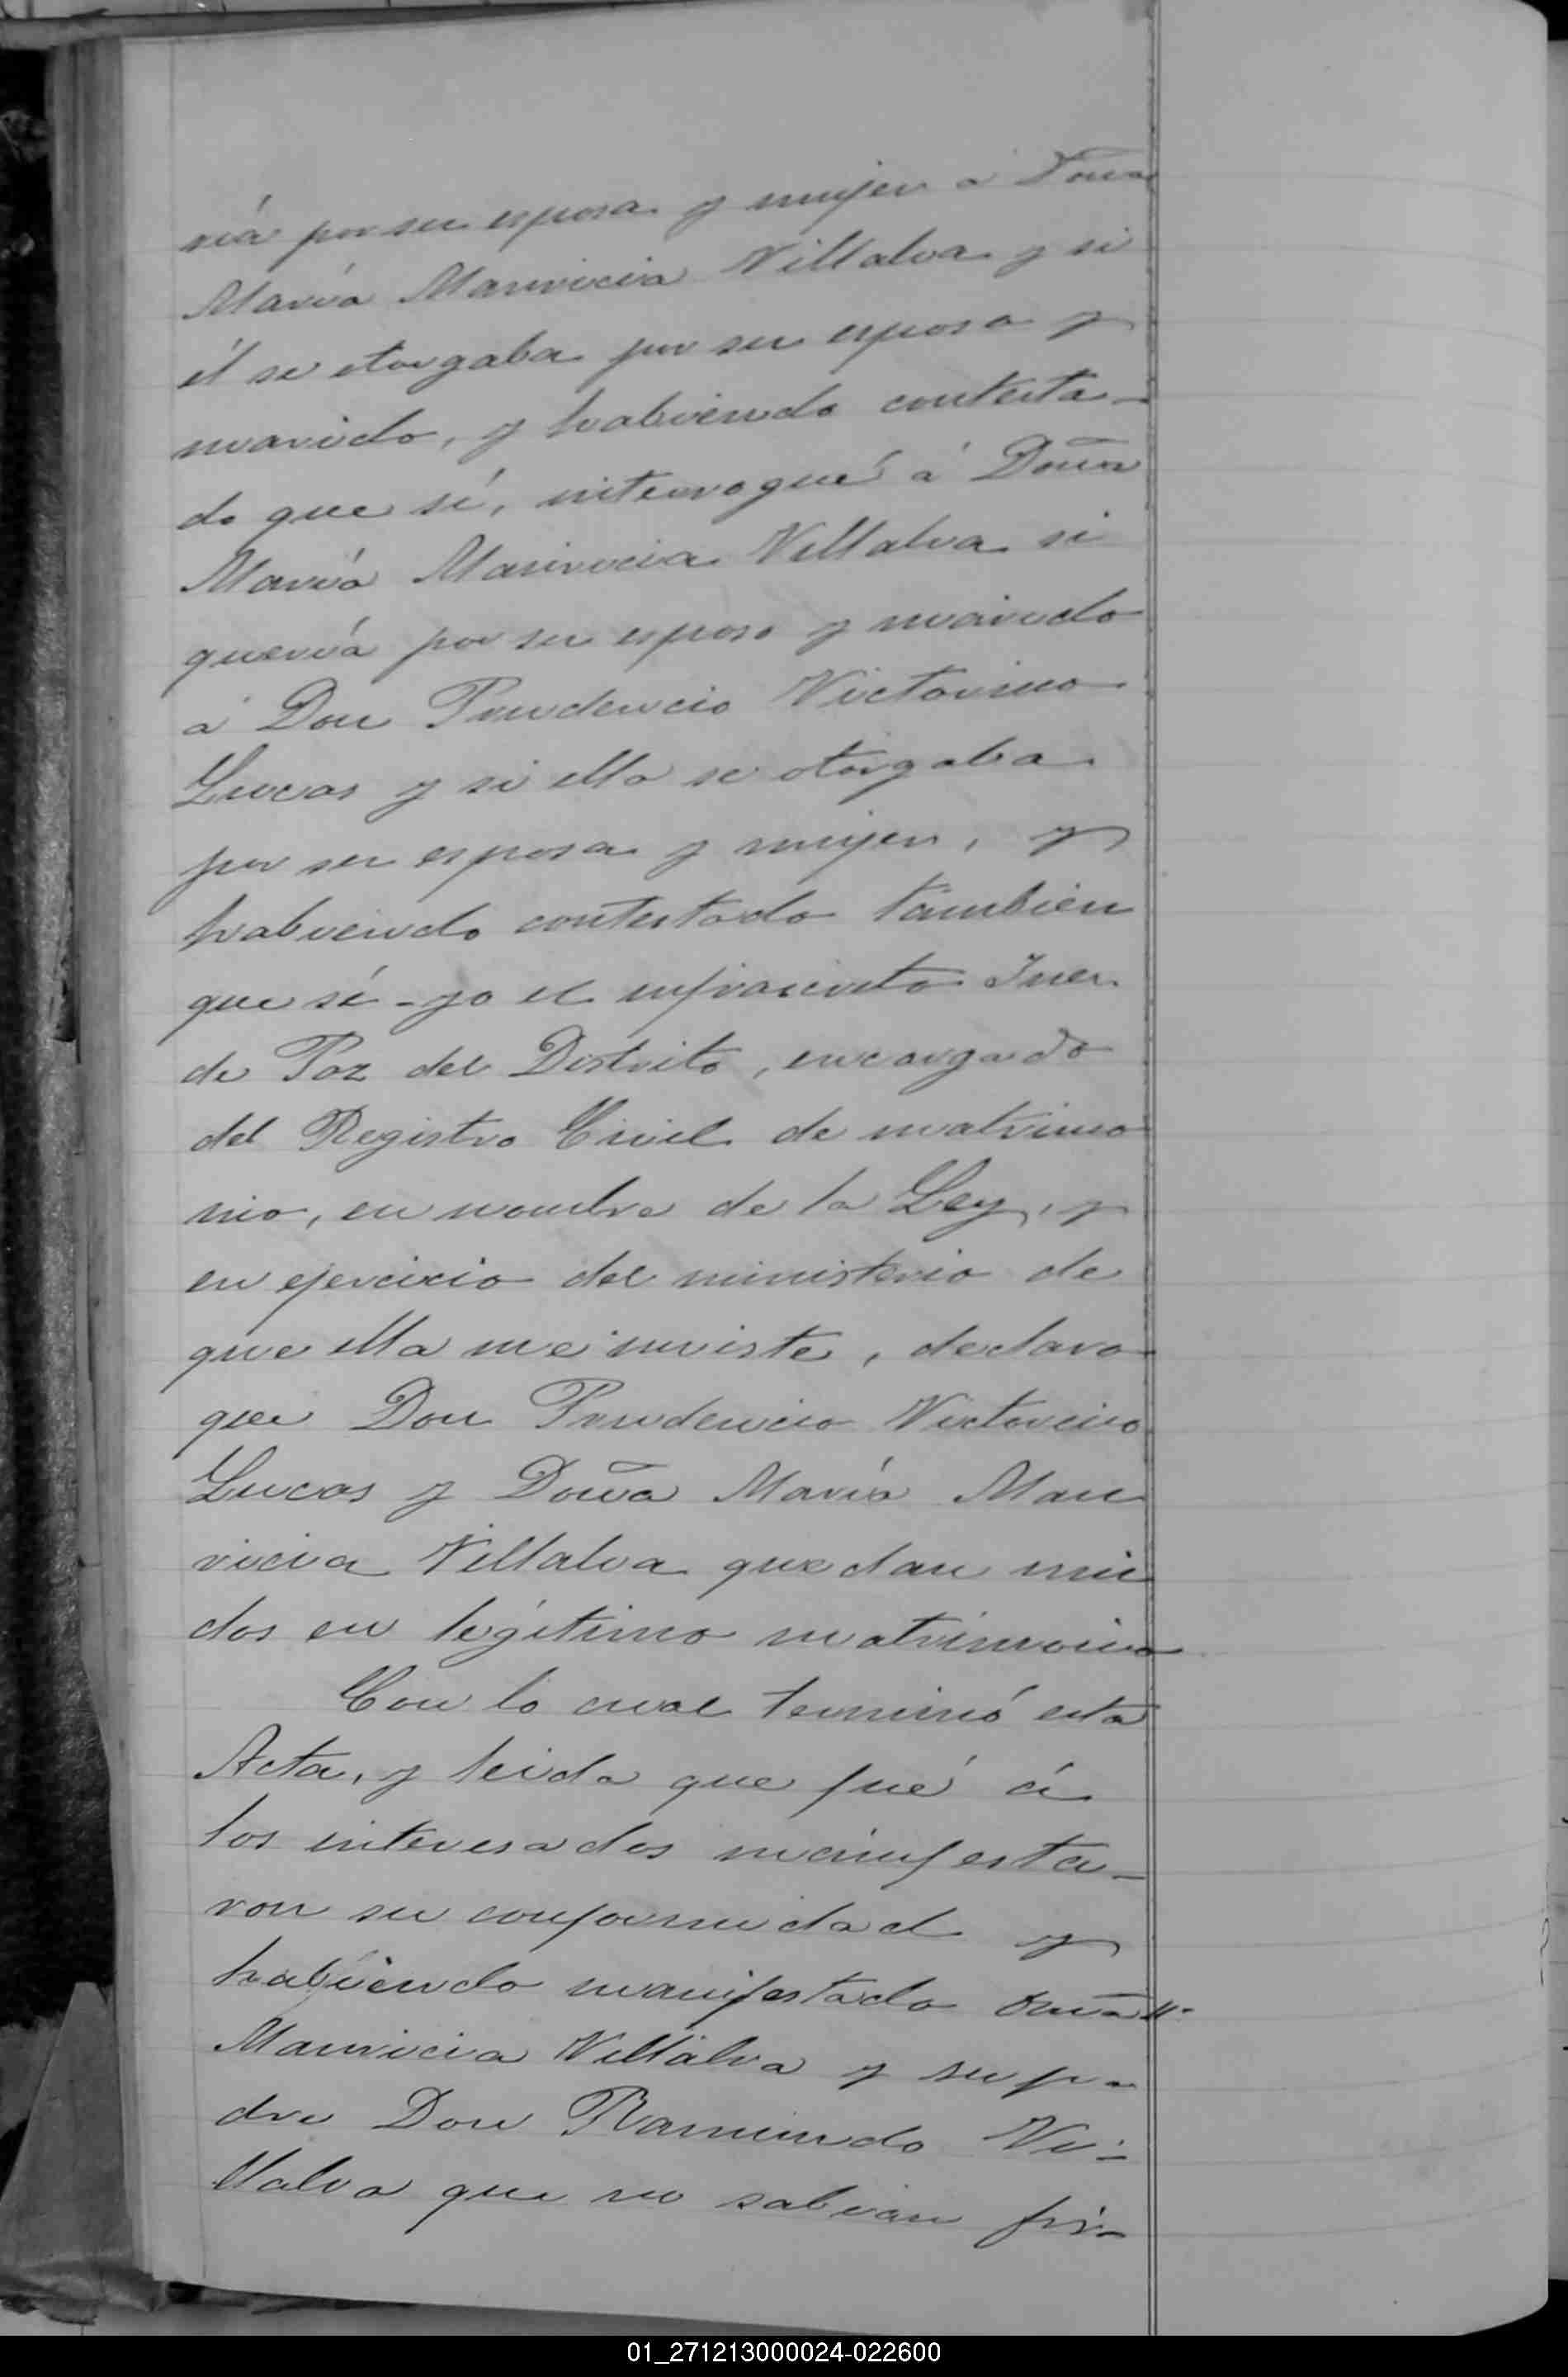 ría por su esposa y mujer á Doña
María Mauricia Villalva y si
él se otorgaba por su esposo y
marido, y habiendo contesta-
do que sí, interrogué á Doña
María Mauricia Villalva si
quería por su esposo y marido
á Don Prudencio Victorino
Lucas y si ella se otorgaba
por su esposa y mujer, y
habiendo contestado tambien
que sí - yo el infrascrito Juez
de Paz del Distrito, encargado
del Registro Civil de matrimo
nio, en nombre de la Ley, y
en ejercicio del ministerio de
que ella me inviste, declaro
que Don Prudencio Victorino
Lucas y Doña María Mau
ricia Villalva quedan uni
dos en legítimo matrimonio
Con lo cual terminó esta
Acta, y leida que fué á
los interesados manifesta-
ron su conformidad y
habiendo manifestado
Mauricia Villalva y su pa
dre Don Raimundo Vi-
llalva que no sabian fir-
01_271213000024-022600